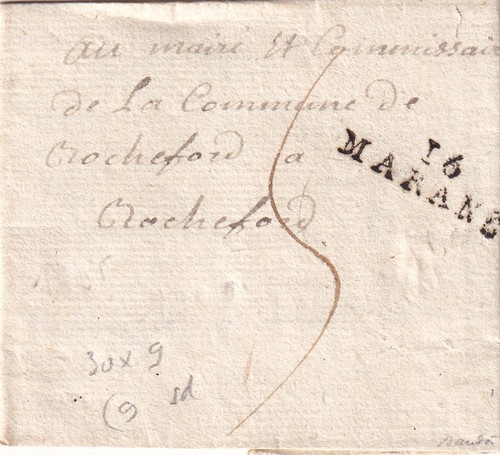 au maire et Commissai
de La Commune de
Rocheford a
Rocheford
16
MARANS
30 x 9
(9 sd